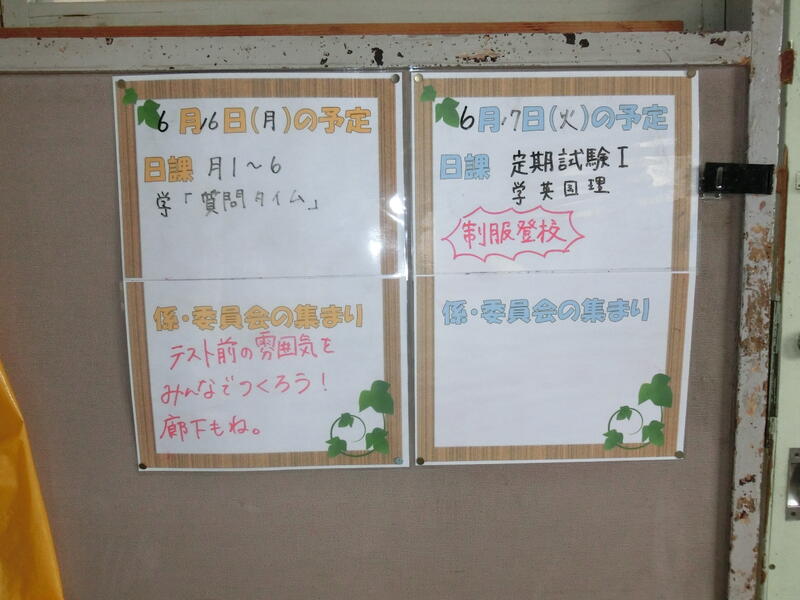 6月16日(月)の予定
日課 月1~6
学「質問タイム」
係・委員会の集まり
テスト前の雰囲気を
みんなでつくろう!
廊下もね。
6月17日(火)の予定
日課 定期試験Ⅰ
学 英国理
制服登校
係・委員会の集まり